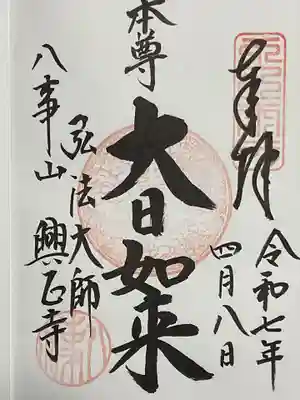 奉拝
令和七年
四月八日
本尊
大日如来
弘法大師
八事山 興正寺